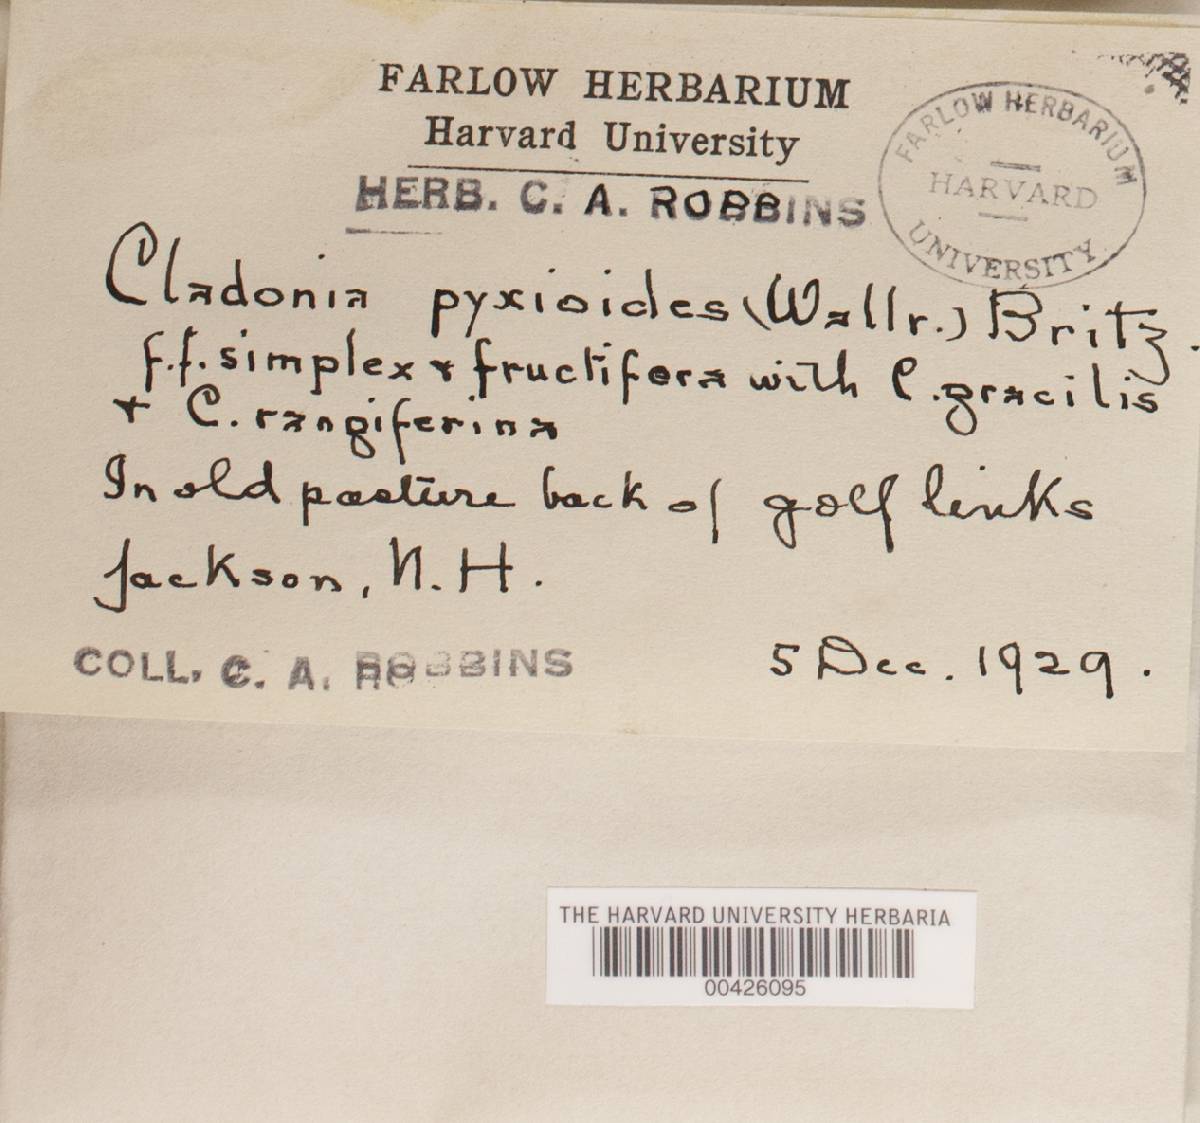 FARLOW HERBARIUM
Harvard University
HERB. C. A. ROBBINS
FARLOW HERBARIUM
HARVARD
UNIVERSITY
Cladonia pyxioides (Wallr.) Britz.
f.f. simplex & fructifera with C. gracilis
& C. rangiferina
In old pasture back of golf links
Jackson, N. H.
COLL. C. A. ROBBINS
5 Dec. 1929.
THE HARVARD UNIVERSITY HERBARIA
00426095